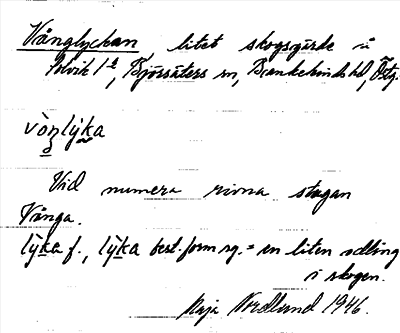 Vånglyckan, litet skogsgärde å
Solvik 1², Björsäters sn, Bankekinds hd, Östg.
vòŋlỳka
Vid numera rivna stugan
Vånga.
lỳka f., lỳka best. form sg. = en liten odling
i skogen.
Maja Nordlund 1946.